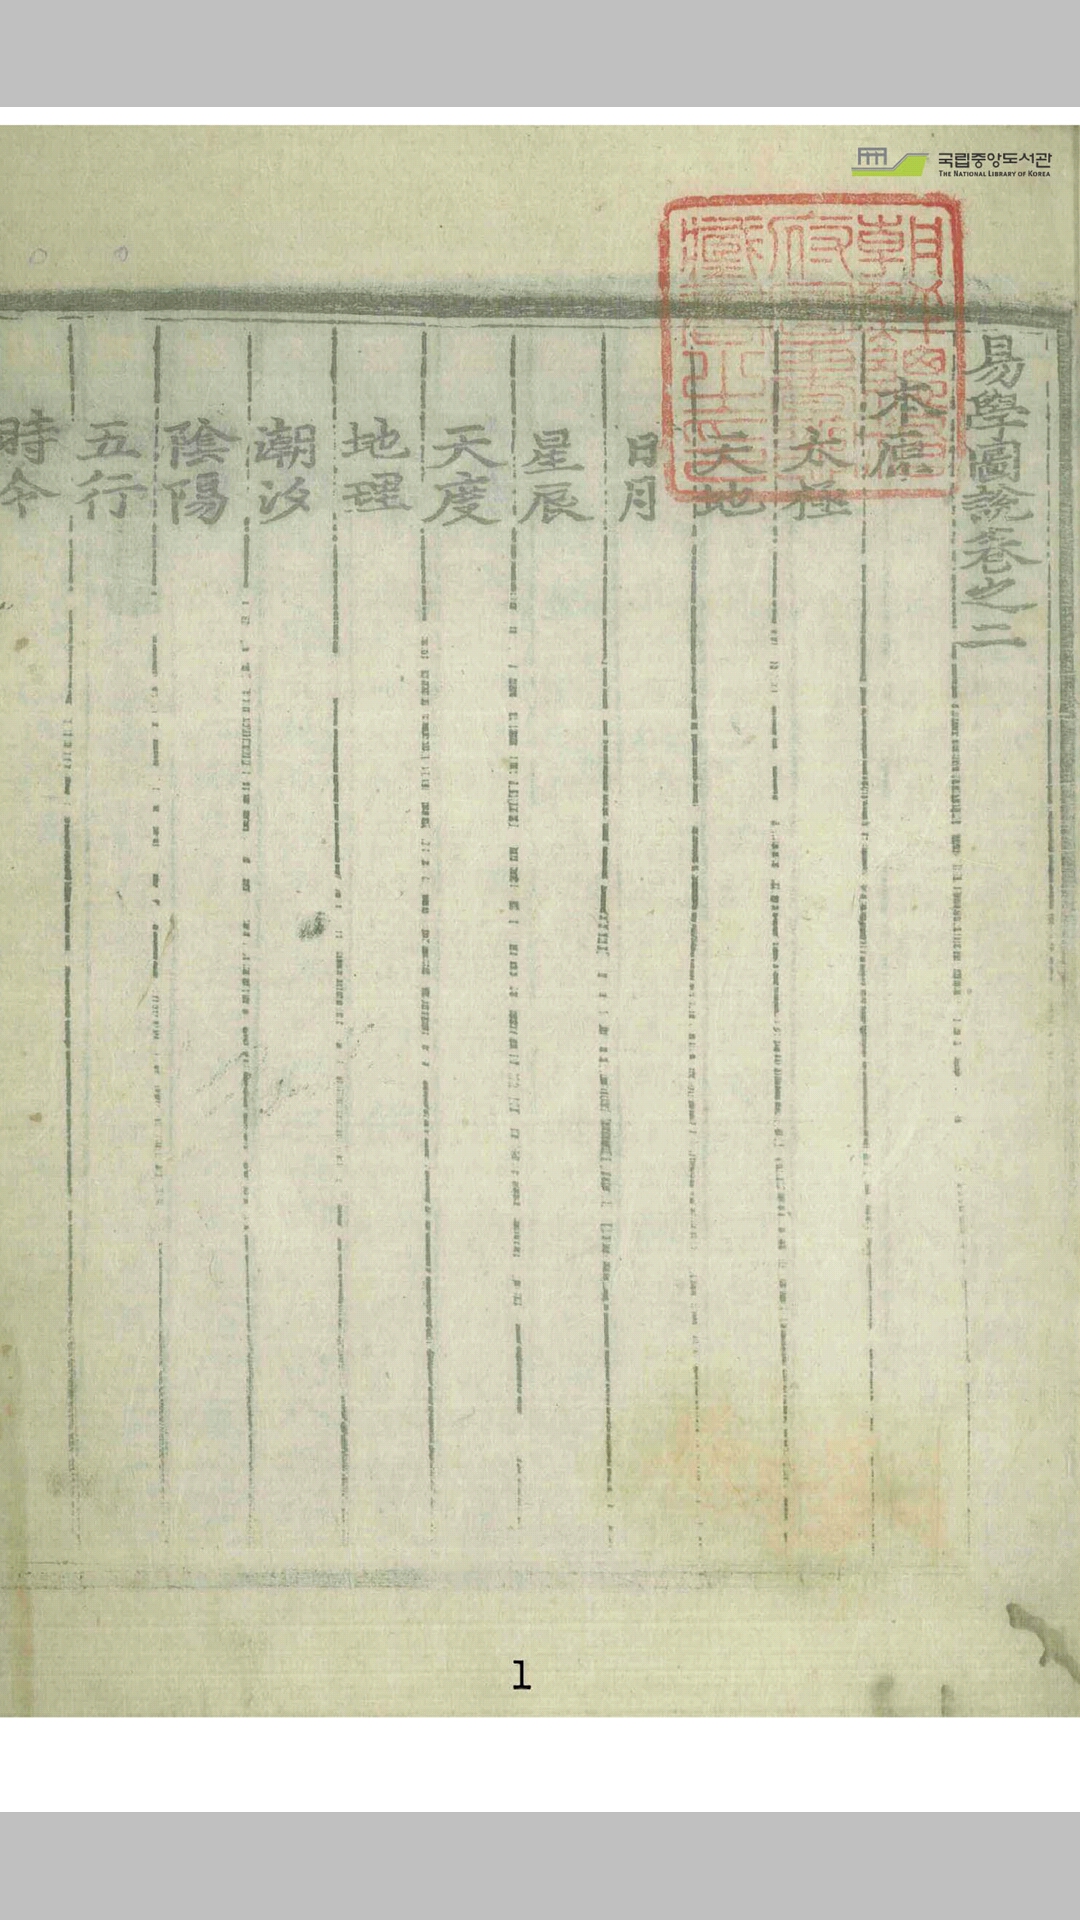 국립중앙도서관
THE NATIONAL LIBRARY OF KOREA
朝鮮總督府圖書館藏書之印
易學圖說卷之二
本原
太極
天地
日月
星辰
天度
地理
潮汐
陰陽
五行
時令
1